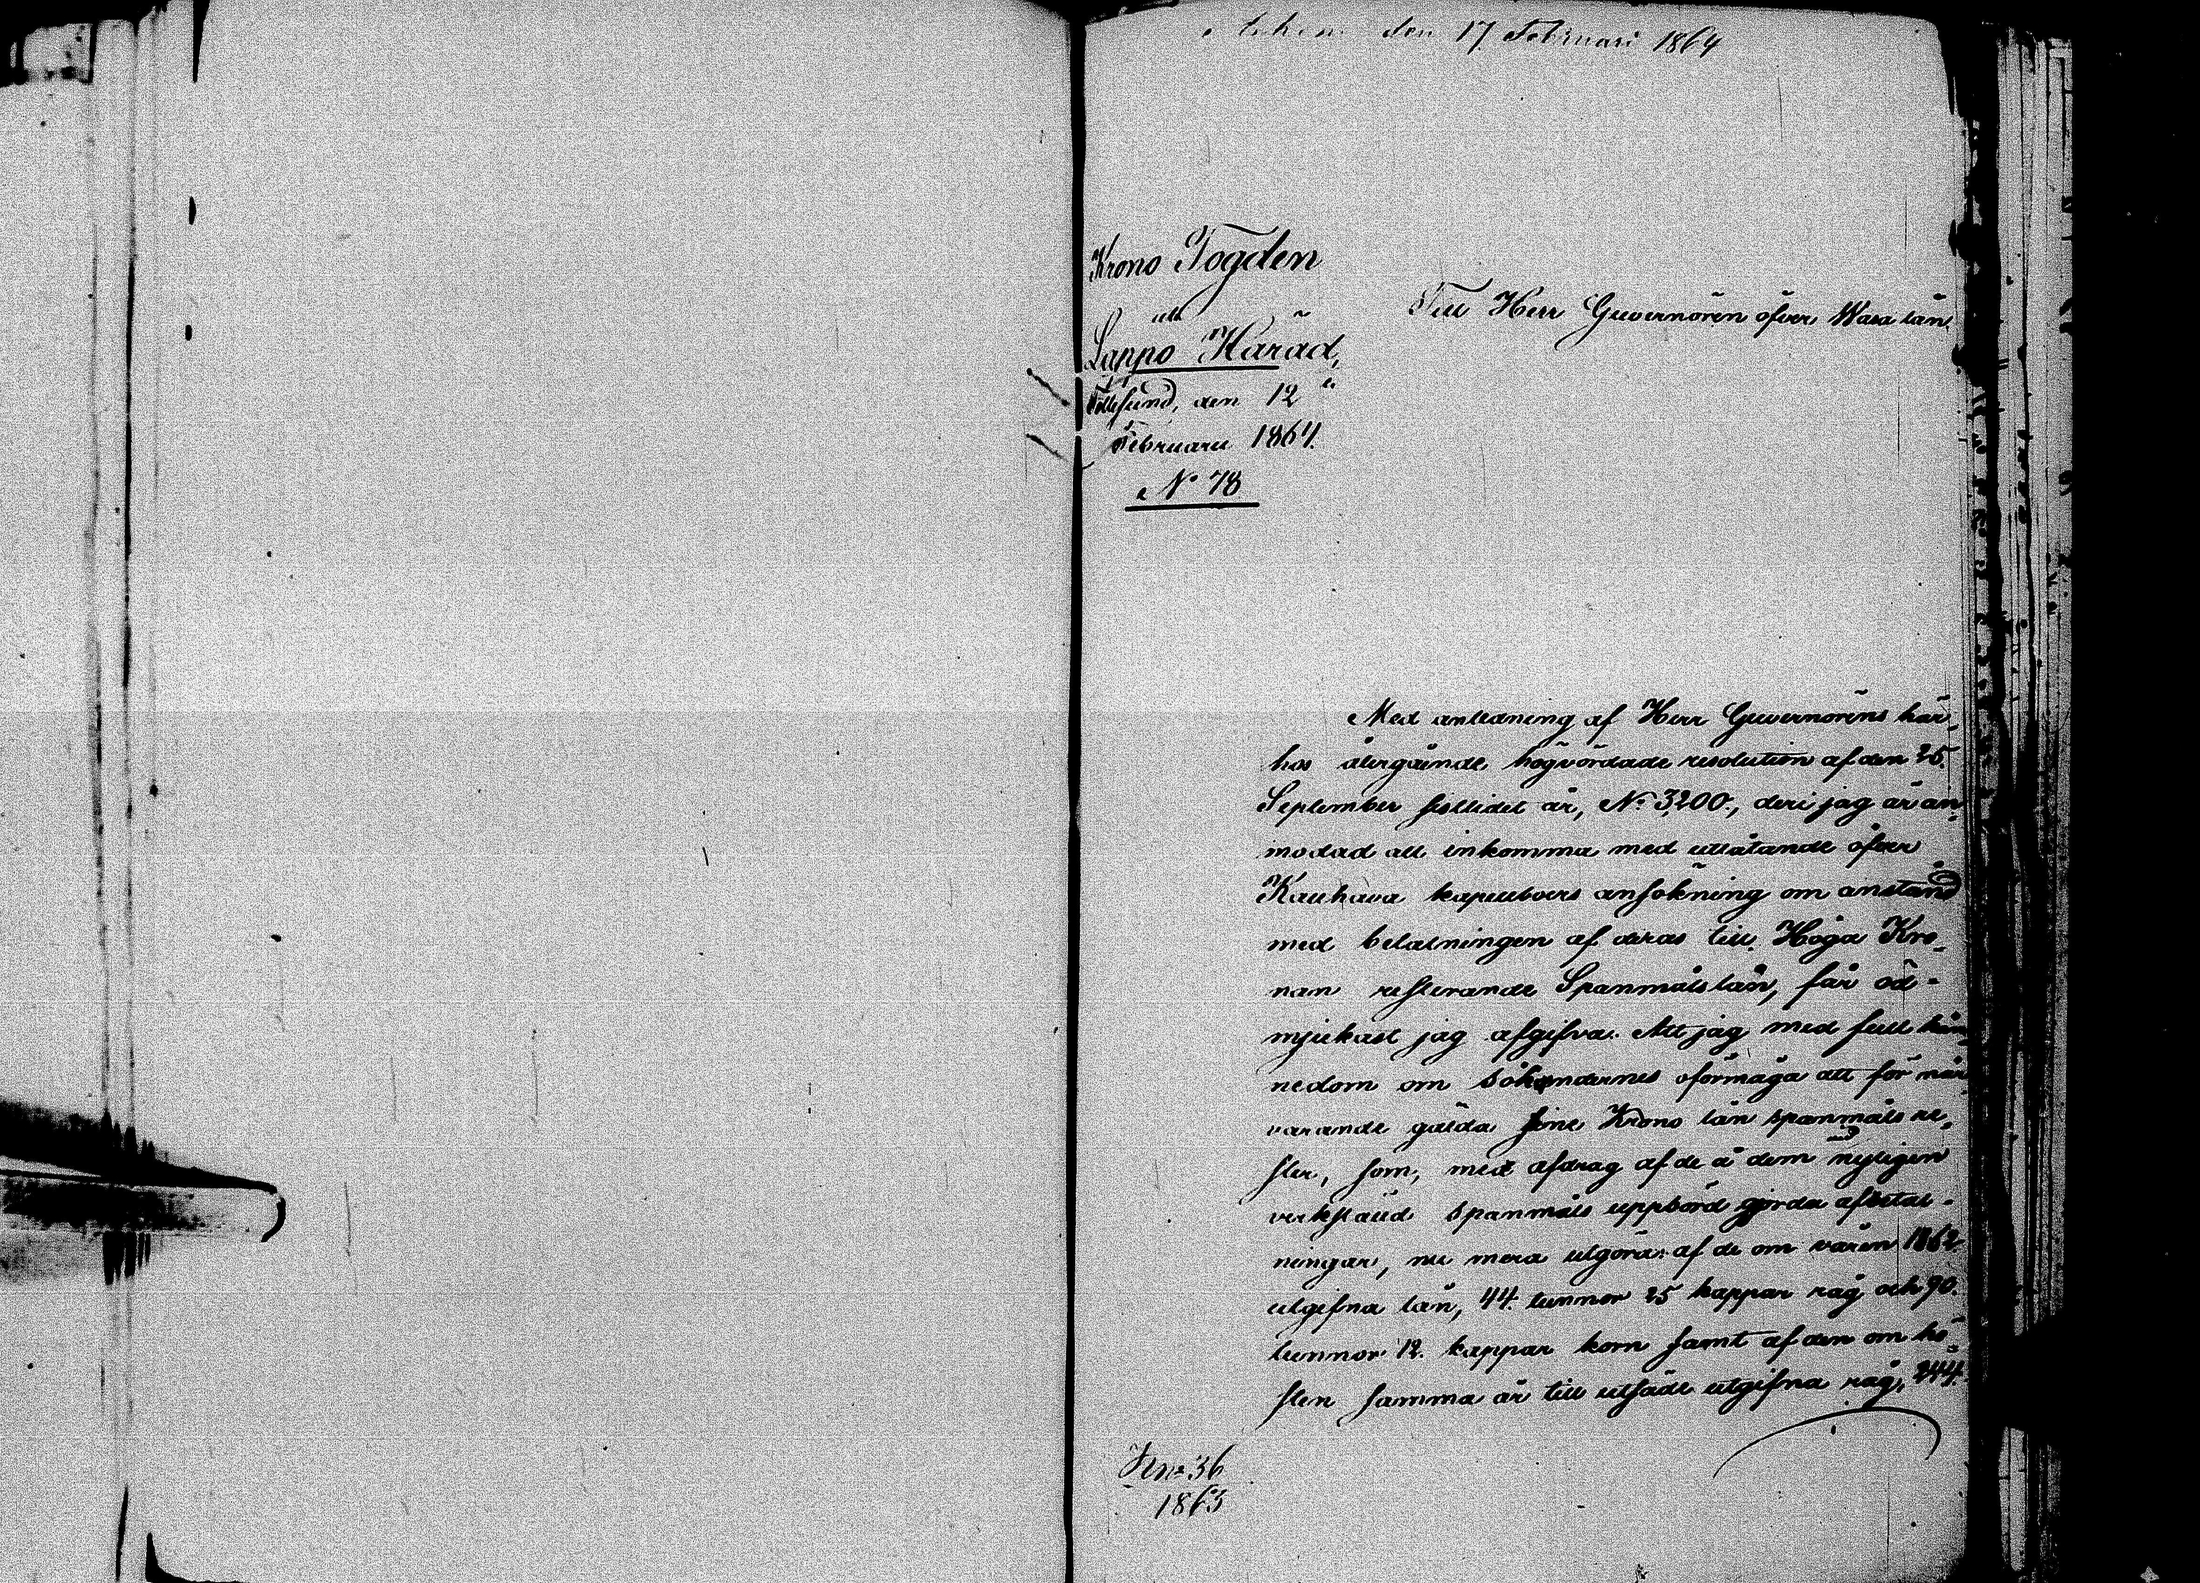 den 17 Februari 1864
Krono Fogden
uti
Lappo Härad,
den 12
Februarii 1864.
No 78
Till Herr Guvernören öfver Wasa län.
Med anledning af Herr Guvernörens här,
hos återgående högvördade resolution af den 25.
September sistlidet år, No 3200., deri jag är an,
modad att inkomma med utlåtande öfver
Kauhava kapellboers ansökning om anstånd
med betalningen af deras till Höga Kro,
nan resterande Spanmåls lån, får öd-
mjukast jag afgifva: Att jag med full kän,
nedom om sökandernes oförmåga att för när,
varande gälda sine Krono lån spanmåls re,
ster, som, med afdrag af de å dem vid nyligen
verkstäld spanmåls uppbörd gjorda afbetal-
ningar, nu mera utgöra: af de om våren 1862
utgifna lån, 44. tunnor 25 kappar råg och 90.
tunnor 12. kappar korn samt af den om hö-
sten samma år till utsäde utgifna råg, 244.
Kno 36
1863